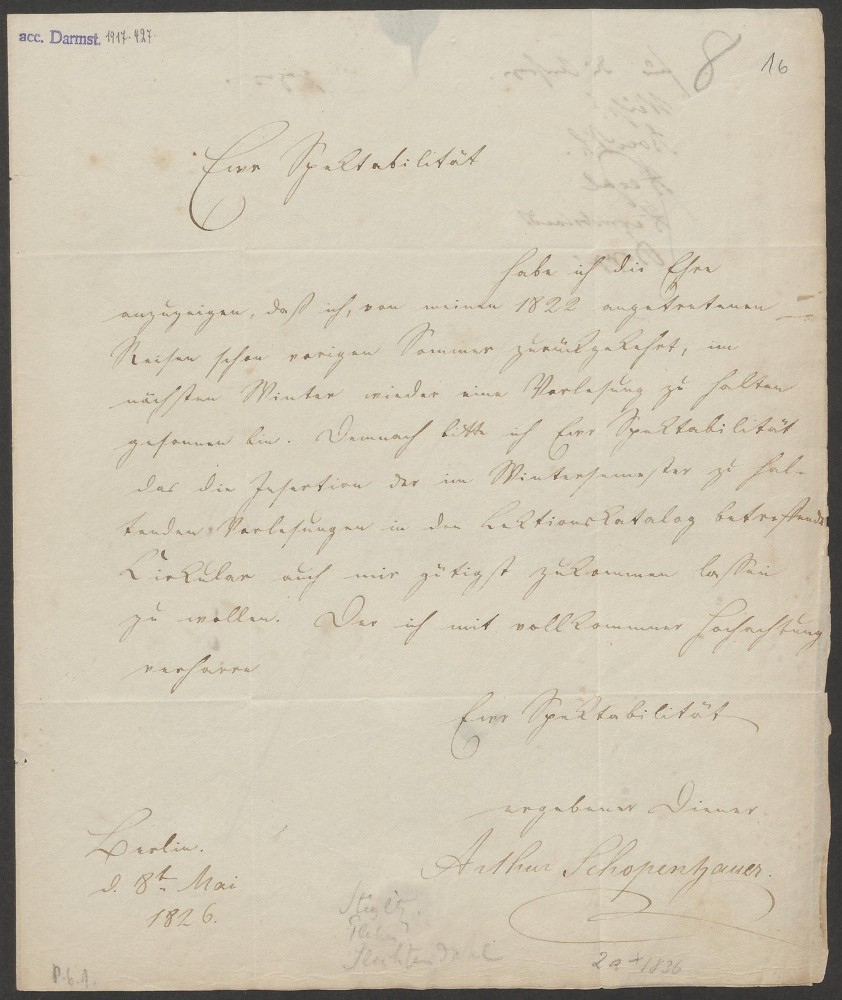 acc. Darmst. 1917. 427
16
8
Ewr Spektabilität
habe ich die Ehre
anzuzeigen, daß ich, von meinen 1822 angetretenen
Reisen schon vorigen Sommer zurückgekehrt, im
nächsten Winter wieder eine Vorlesung zu halten
gesonnen bin. Demnach bitte ich Ewr Spektabilität
das die Insertion der im Wintersemester zu hal-
tenden Vorlesungen in den Lektionskatalog betreffende
Cirkular auch mir gütigst zukommen lassen
zu wollen. Der ich mit vollkommner Hochachtung
verharre
Ewr Spektabilität
ergebener Diener
Arthur Schopenhauer.
Berlin.
d. 8t. Mai
1826.